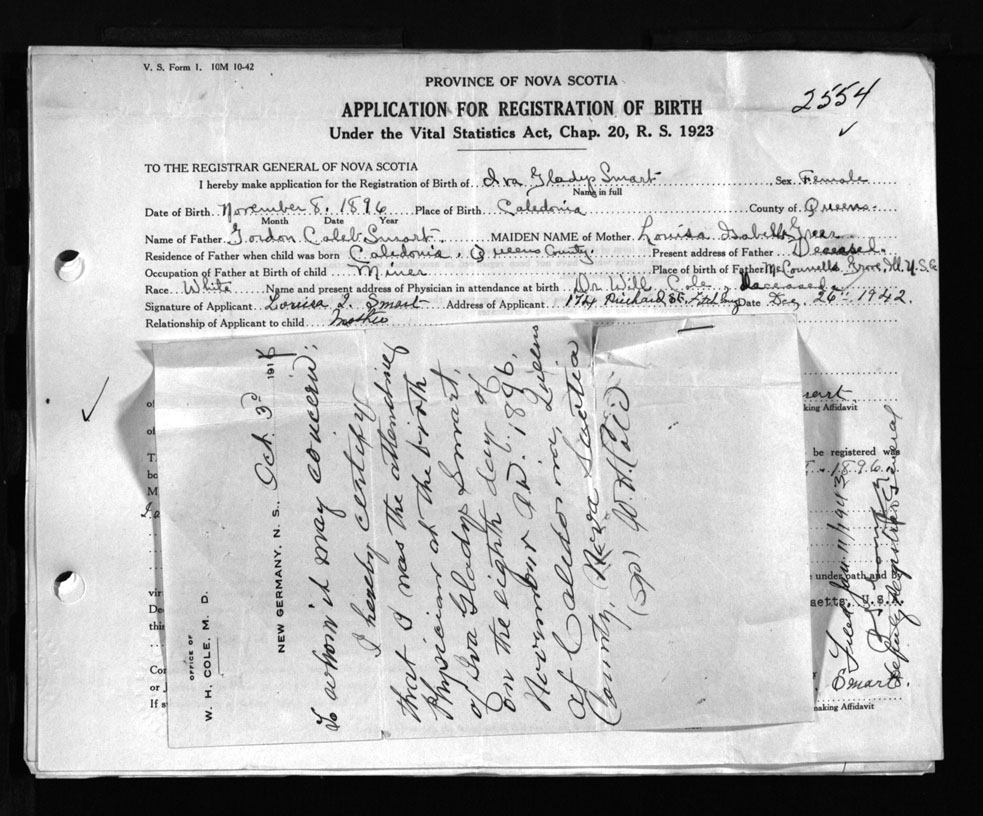 V. S. Form 1. 10M 10-42
PROVINCE OF NOVA SCOTIA
2554
APPLICATION FOR REGISTRATION OF BIRTH
Under the Vital Statistics Act, Chap. 20, R. S. 1923
TO THE REGISTRAR GENERAL OF NOVA SCOTIA
I hereby make application for the Registration of Birth of Iva Gladys Smart Sex Female
Name in full
Date of Birth November 8. 1896 Place of Birth Caledonia County of Queens
Month Date Year
Name of Father Gordon Caleb Smart MAIDEN NAME of Mother Louisa Isabell
Residence of Father when child was born Caledonia, Queens County Present address of Father Deceased
Occupation of Father at Birth of child Miner Place of Birth of Father McConnells U.S.A
Race White Name and present address of Physician in attendance at birth Dr Will Cole, Deceased
Signature of Applicant Louisa I. Smart Address of Applicant 174 St. Date Dec 26th 1942.
Relationship of Applicant to child Mother
OFFICE OF
W. H. COLE, M. D.
NEW GERMANY, N. S., Oct. 3d 191
To whom it may concern:
I hereby certify
that I was the attending
Physician at the birth
of Iva Gladys Smart,
on the eighth day of
November A.D. 1896,
at Caledonia, Queens
County, Nova Scotia
(sgd) W. H. Cole
king Affidavit
be registered was
1896
under oath and by
setts, U.S.A.
Smart
making Affidavit
Filed Jan. 11/1943
Deputy Registrar General
of
of
Th
bo
M
vir
De
thi
Con
or J
If s